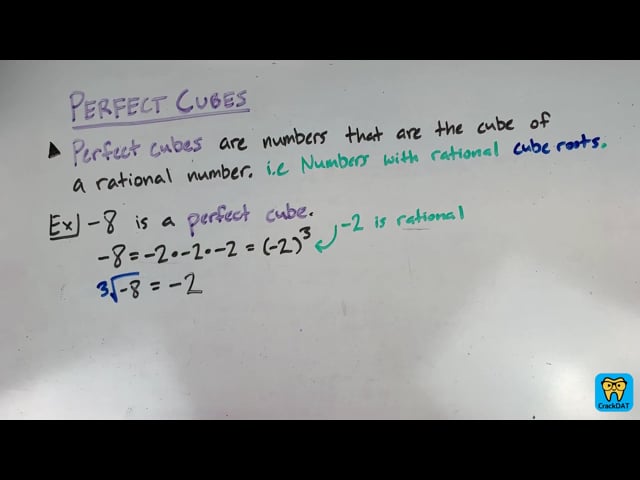 PERFECT CUBES
▲ Perfect cubes are numbers that are the cube of
a rational number. i.e Numbers with rational cube roots.
Ex) -8 is a perfect cube.
-8 = -2 • -2 • -2 = (-2)³ -2 is rational
³√-8 = -2
CrackDAT